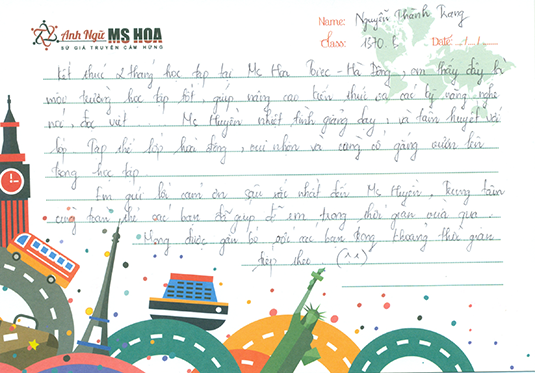 Anh Ngữ MS HOA
SỨ GIẢ TRUYỀN CẢM HỨNG
Name: Nguyễn Thành Trang
Class: 1570. Date:
Kết thúc 2 tháng học tập tại Ms Hoa Toeic - Hà Đông, em thấy đây là
môi trường học tập tốt, giúp nâng cao kiến thức và các kỹ năng nghe
nói, đọc viết. Ms Huyền nhiệt tình giảng dạy, và tâm huyết với
lớp. Tập thể lớp hoạt động, vui nhộn và cùng cố gắng vươn lên
trong học tập.
Em gửi lời cảm ơn sâu sắc nhất đến Ms Huyền, Trung tâm
cùng toàn thể các bạn đã giúp đỡ em trong thời gian vừa qua.
Mong được gắn bó với các bạn trong khoảng thời gian
tiếp theo. (^^)